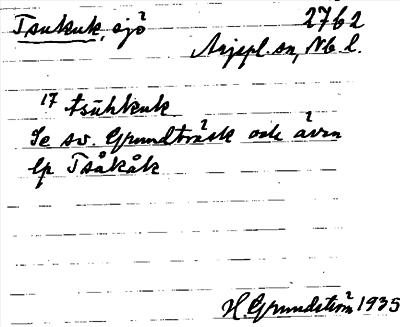 Tsukuk, sjö 2762
Arjepl. sn, Nb l.
17 tsūhkuk
Se sv. Grundträsk och även
lp Tsåkåk
H. Grundström 1935